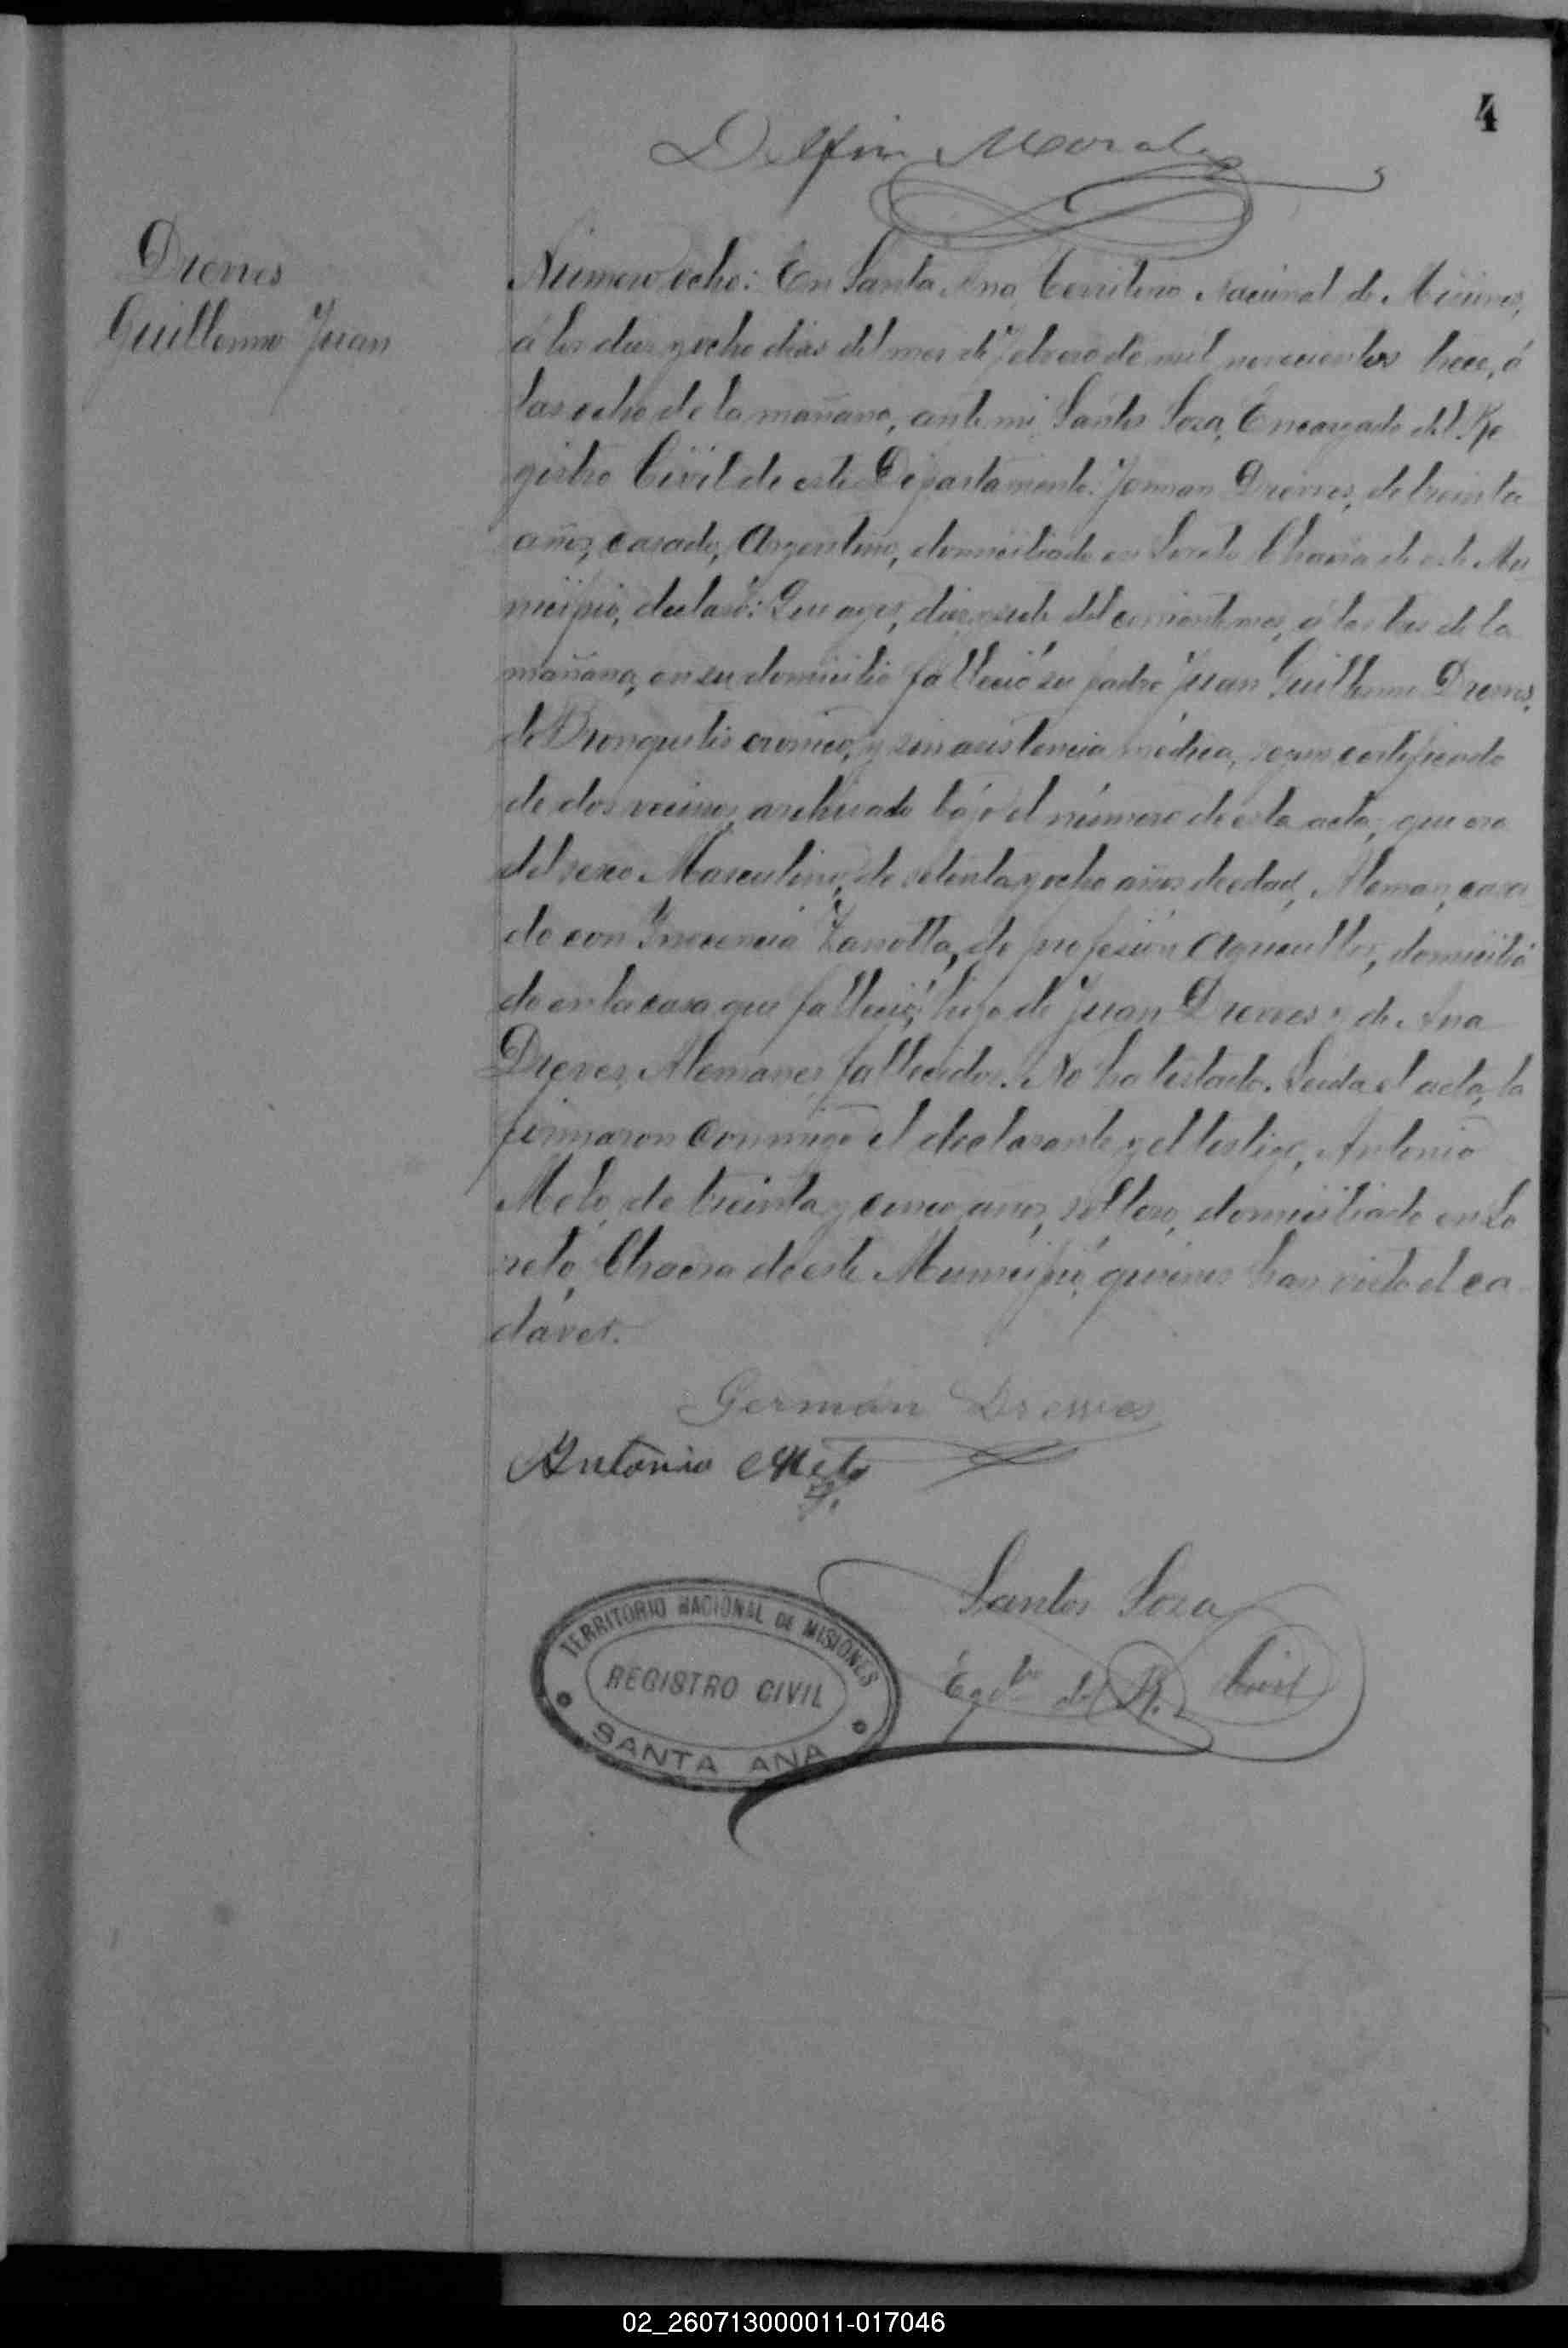 4
Delfin Morales
Drewes
Guillermo Juan
Número ocho: En Santa Ana, Territorio Nacional de Misiones,
á los diez y ocho dias del mes de Febrero de mil novecientos trece, á
las ocho de la mañana, ante mi Santos Soza, Encargado del Re
gistro Civil de este Departamento. German Drewes, de treinta
años, casado, Argentino, domiciliado en Loreto Chacra de este Mu
nicipio, declaró: Que ayer, diez y siete del corriente mes, á las tres de la
mañana, en su domicilio falleció su padre Juan Guillermo Drewes,
de Bronquitis cronica, y sin asistencia médica, segun certificado
de dos vecinos archivado bajo el número de esta acta, que era
del sexo Masculino, de setenta y ocho años de edad, Aleman, casa
do con Inocencia Zanotta, de profesión Agricultor, domicilia
do en la casa que falleció, hijo de Juan Drewes y de Ana
Dreves, Alemanes, fallecidos. No ha testado. Leida el acta, la
firmaron conmigo el declarante y el testigo, Antonio
Melo, de treinta y cinco años, soltero, domiciliado en Lo
reto, Chacra de este Municipio, quienes han visto el ca
dáver.
German Drewes
Antonio Melo
Santos Soza
Egdo del R. Civil
TERRITORIO NACIONAL DE MISIONES
REGISTRO CIVIL
SANTA ANA
02_260713000011-017046